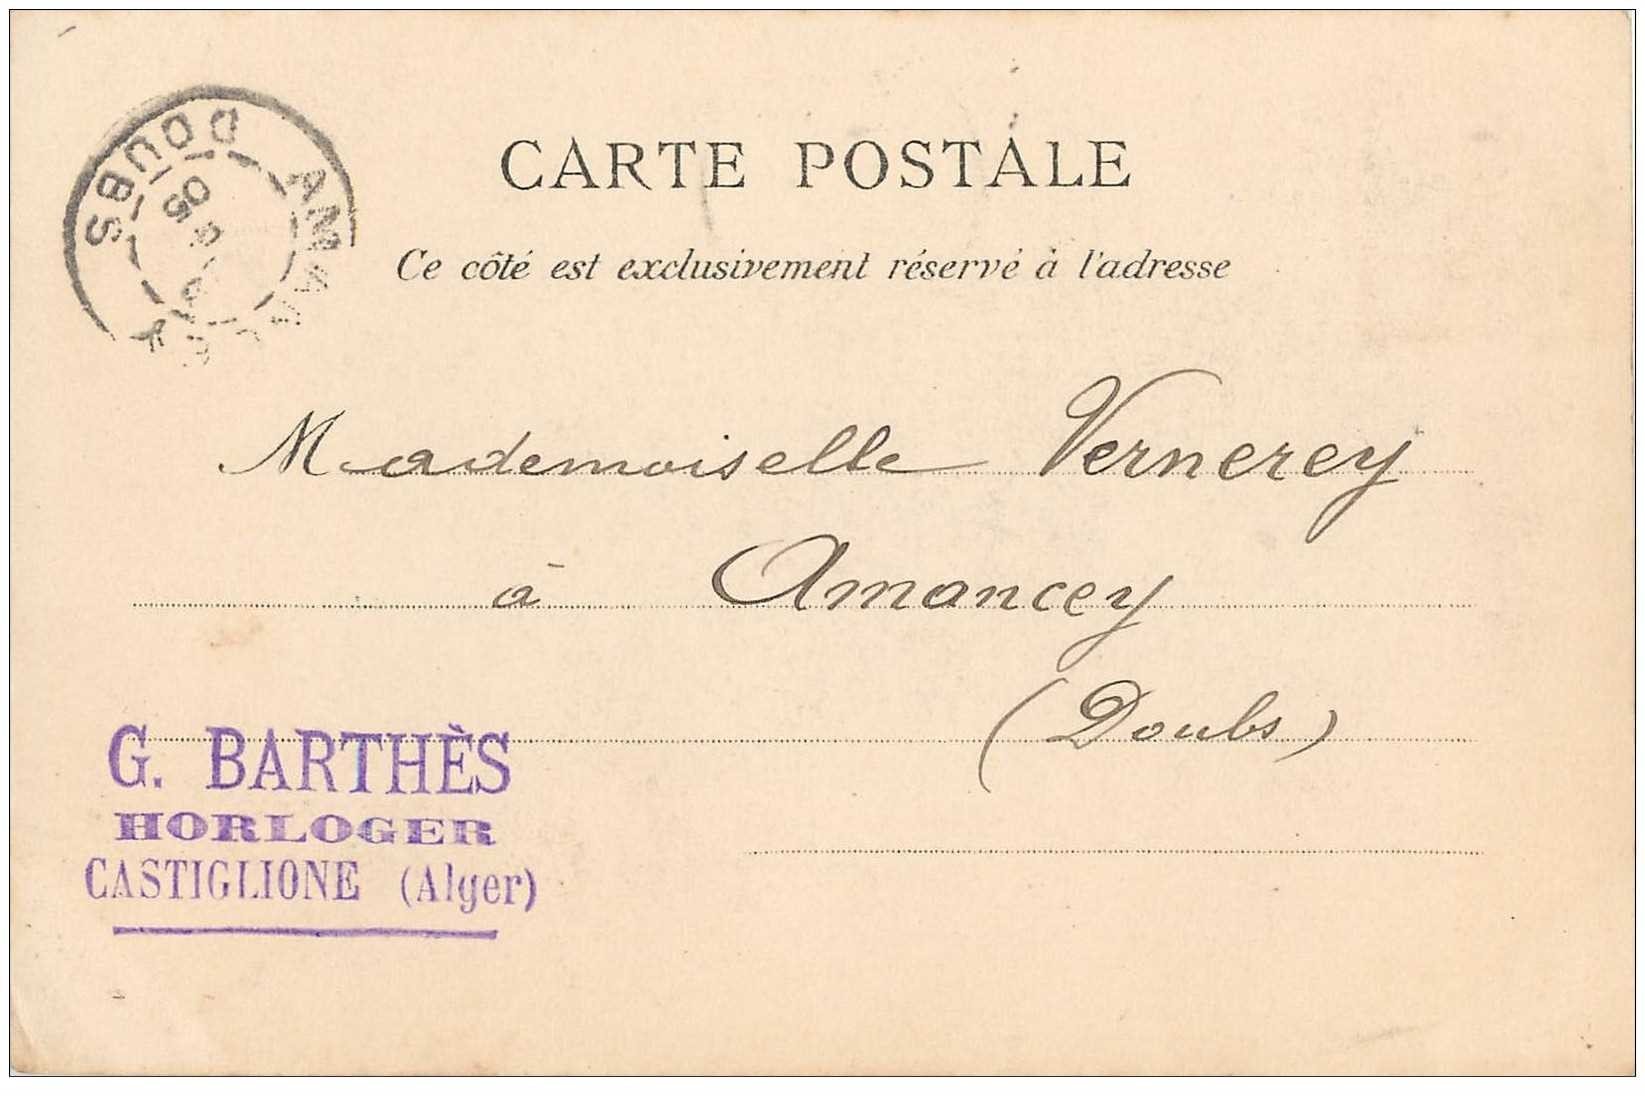 DOUBS
05
CARTE POSTALE
Ce côté est exclusivement réservé à l'adresse
Mademoiselle Vernerey
à Amancey
(Doubs)
G. BARTHÈS
HORLOGER
CASTIGLIONE (Alger)